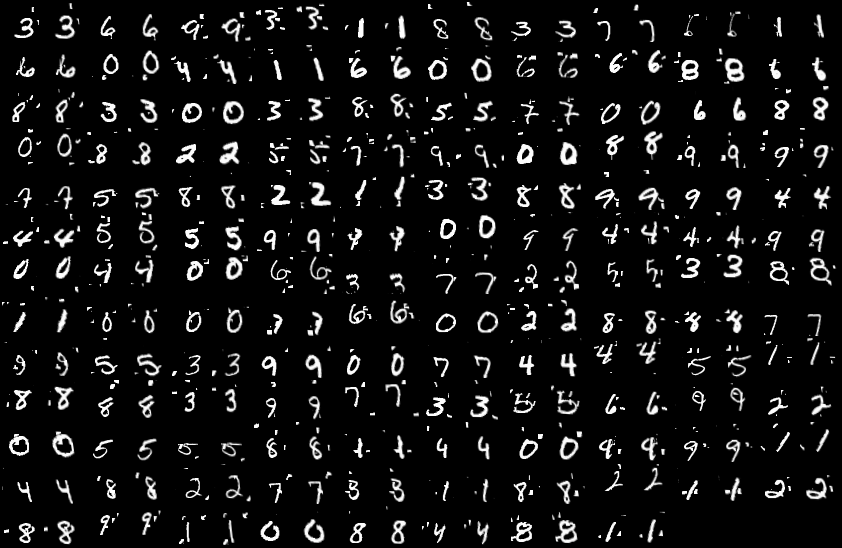 3 3 6 6 9 9 3 3 1 1 8 8 3 3 7 7 1 1
6 6 0 0 4 4 1 1 6 6 0 0 6 6 6 6 8 8 6 6
8 8 3 3 0 0 3 3 8 8 5 5 7 7 0 0 6 6 8 8
0 0 8 8 2 2 5 5 7 7 9 9 0 0 8 8 9 9 9 9
7 7 5 5 8 8 2 2 1 1 3 3 8 8 9 9 9 9 4 4
4 4 5 5 5 5 9 9 4 4 0 0 9 9 4 4 4 4 9 9
0 0 4 4 0 0 6 6 3 3 7 7 2 2 5 5 3 3 8 8
1 1 0 0 0 0 3 3 6 6 0 0 2 2 8 8 8 8 7 7
9 9 5 5 3 3 9 9 0 0 7 7 4 4 4 4 5 5 1 1
8 8 8 8 3 3 9 9 7 7 3 3 5 5 6 6 9 9 2 2
0 0 5 5 5 5 8 8 1 1 4 4 0 0 9 9 9 9 1 1
4 4 8 8 2 2 7 7 3 3 1 1 8 8 2 2 1 1 2 2
8 8 9 9 1 1 0 0 8 8 4 4 8 8 1 1